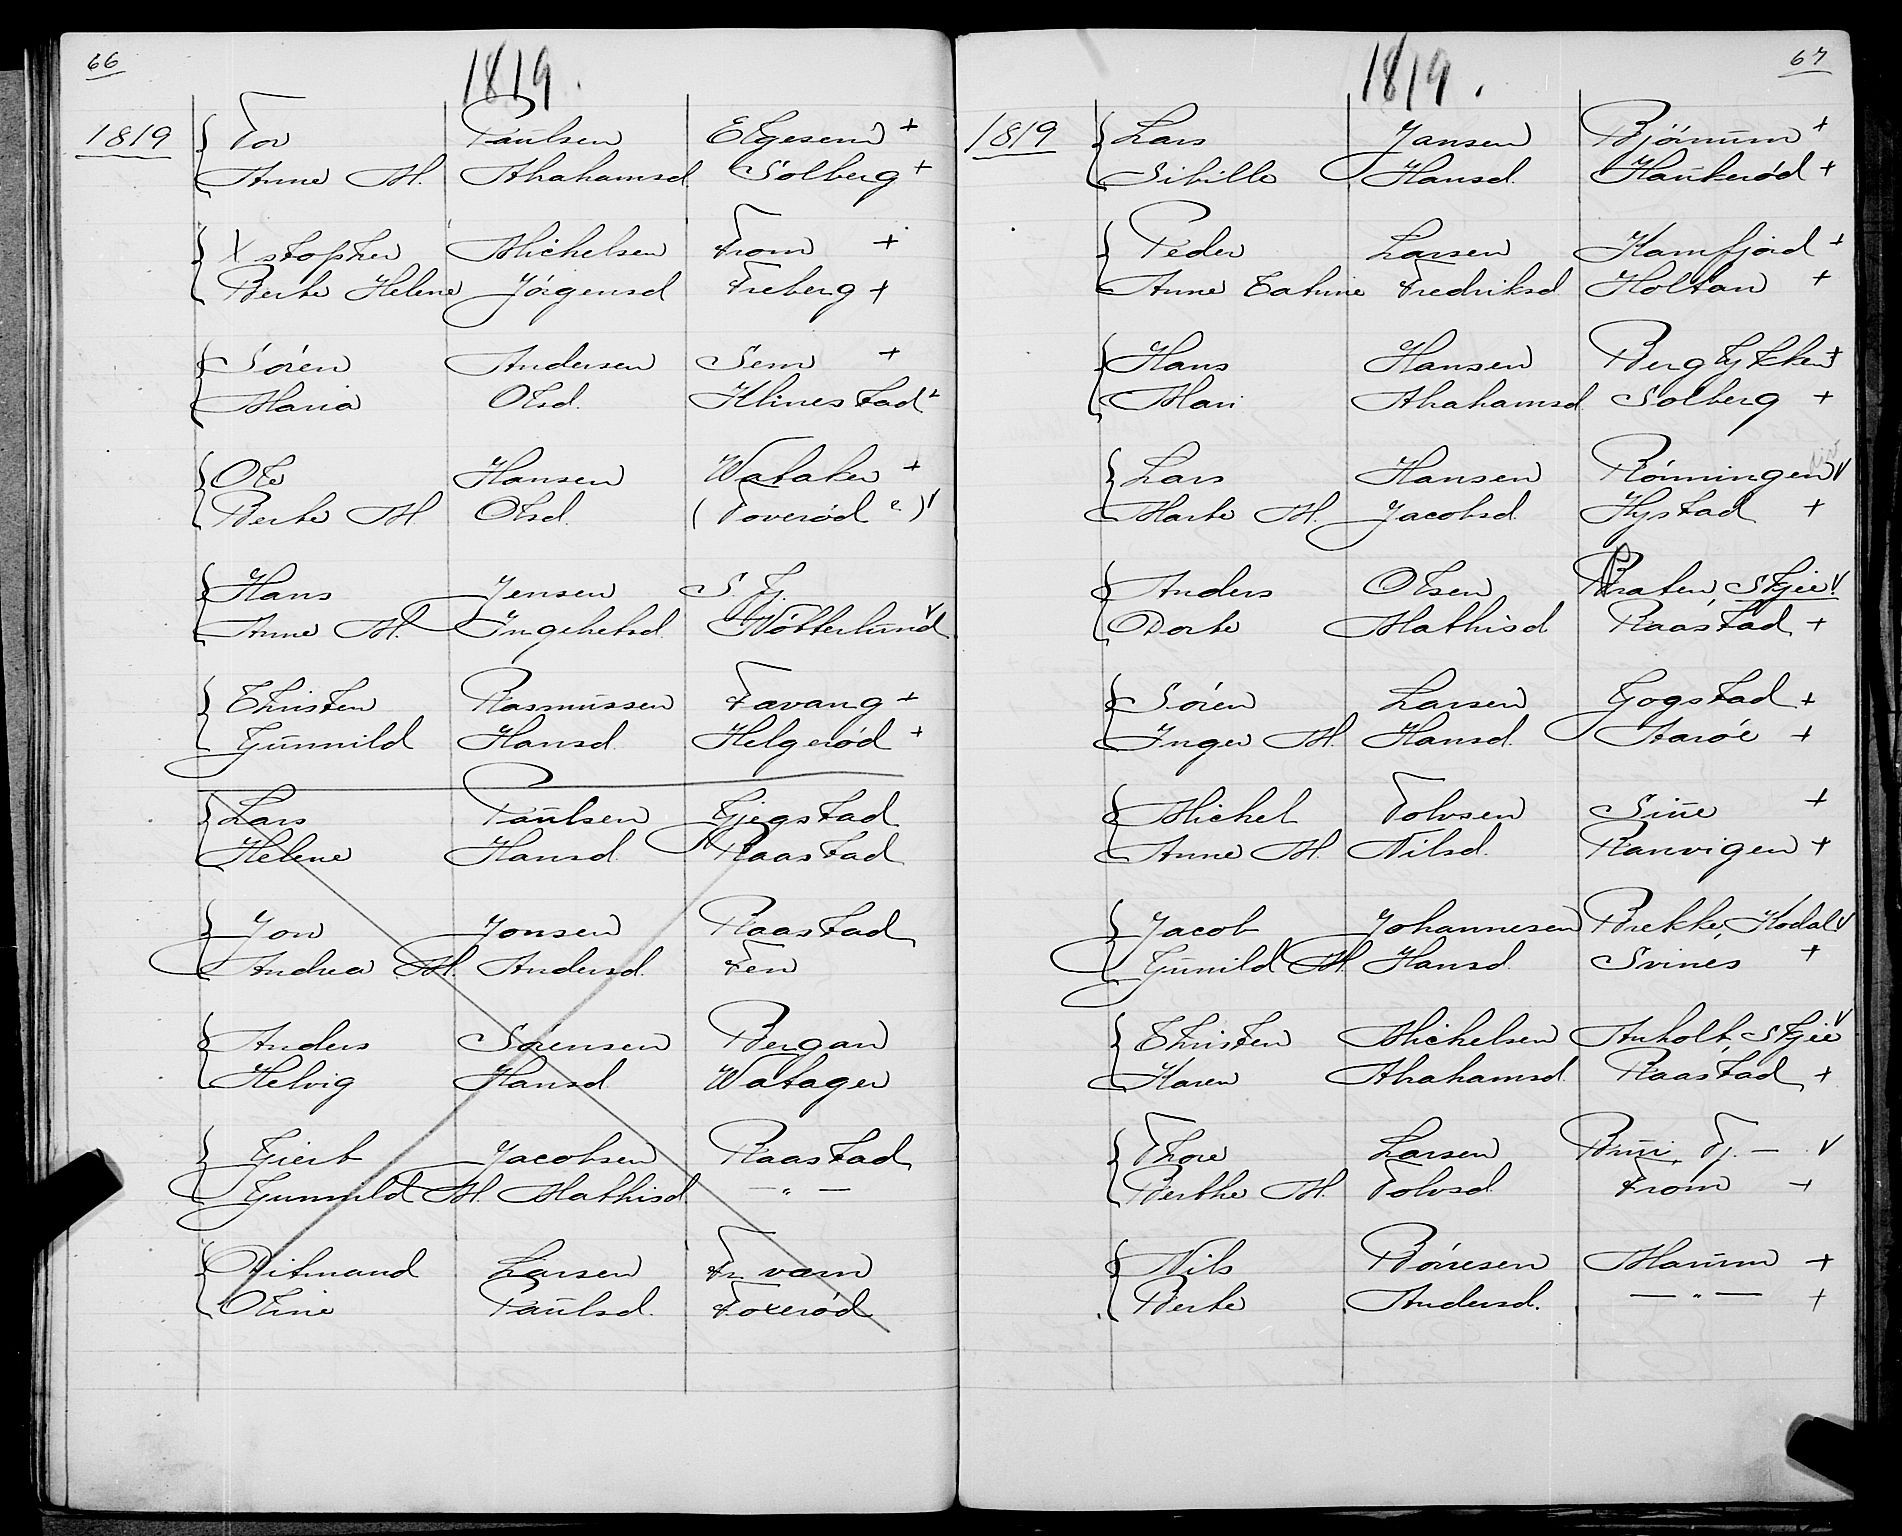 66
1819.
1819 Tor Paulsen Elgesem +
Anne M. Abrahamsd. Solberg +
Xstopher Michelsen From +
Berte Helene Jörgensd Freberg +
Sören Andersen Sem +
Maria Olsd. Klinestad +
Ole Hansen Wataker +
Berte M Olsd. (Toverød ?) V
Hans Jensen S. Fj.
Anne M. Ingebretsd Nötterlund V
Christen Rasmussen Fævang +
Gunnild Hansd. Helgerød +
Lars Paulsen Gjegstad
Helene Hansd. Raastad
Jon Jonsen Raastad
Andrea M. Andersd. Fen
Anders Sörensen Bergan
Helvig Hansd Watager
Giert Jacobsen Raastad
Gunnild M. Mathisd — " —
Ditmand Larsen Fr værn
Oline Paulsd. Foxerød
67
1819.
1819 Lars Jansen Bjørnum +
Sibille Hansd. Haukerød +
Peder Larsen Kamfjord +
Anne Catrine Fredriksd Holtan +
Hans Hansen Berglykken +
Mari Abrahamsd. Solberg +
Lars Hansen Rönningen V
Marte M. Jacobsd. Hystad +
Anders Olsen Braten, Skjee V
Dorte Mathisd Raastad +
Sören Larsen Gogstad +
Inger M. Hansd. Aaröe +
Michel Tolvsen Sūe +
Anne M. Nilsd. Ranvigen +
Jacob Johannesen Brekke, Kodal V
Gunild M. Hansd. Svines +
Christen Michelsen Anholt, Skjee V
Karen Abrahamsd. Raastad +
Thore Larsen Brui, Tj. — V
Berthe M. Tolvsd. From +
Nils Börresen Maūm +
Berte Andersd. — " — +